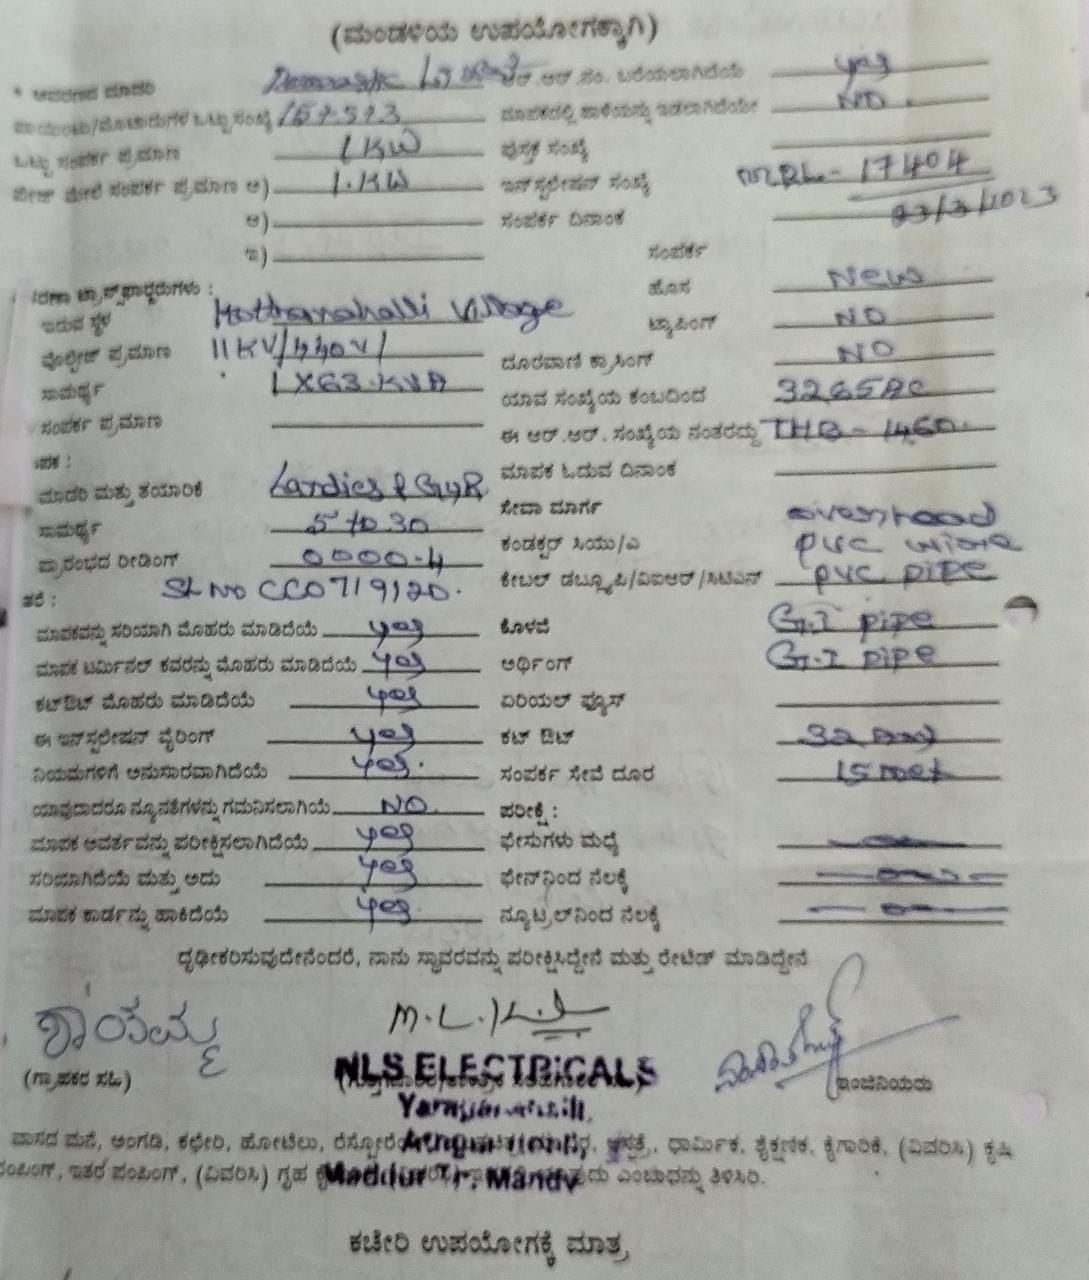 (ಮಂಡಳಿಯ ಉಪಯೋಗಕ್ಕಾಗಿ)
* ಆವರಣದ ಮಾದರಿ ಆರ್.ಆರ್.ನಂ. ಬರೆಯಲಾಗಿದೆಯೆ yes
ಪಾಯಿಂಟು/ಮೋಟಾರುಗಳ ಒಟ್ಟು ಸಂಖ್ಯೆ ಮಾಪಕದಲ್ಲಿ ಹಾಳೆಯನ್ನು ಇಡಲಾಗಿದೆಯೇ NO.
ಒಟ್ಟು ಸಂಪರ್ಕ ಪ್ರಮಾಣ 1 KW ಪುಸ್ತಕ ಸಂಖ್ಯೆ
ಪೇಜ್ ಮೇಲೆ ಸಂಪರ್ಕ ಪ್ರಮಾಣ ಅ) 1.KW ಇನ್‌ಸ್ಟಲೇಷನ್ ಸಂಖ್ಯೆ 17404
ಆ) ಸಂಪರ್ಕ ದಿನಾಂಕ 23/3/2023
ಇ) ಸಂಪರ್ಕ
ಟ್ರಾನ್ಸ್‌ಫಾರ್ಮರುಗಳು :
ಇರುವ ಸ್ಥಳ Hothanahalli Village ಹೊಸ New
ಟ್ಯಾಪಿಂಗ್ NO
ವೋಲ್ಟೇಜ್ ಪ್ರಮಾಣ 11KV/440V/ ದೂರವಾಣಿ ಕ್ರಾಸಿಂಗ್ NO
ಸಾಮರ್ಥ್ಯ 1X63.KVA ಯಾವ ಸಂಖ್ಯೆಯ ಕಂಬದಿಂದ
ಸಂಪರ್ಕ ಪ್ರಮಾಣ ಈ ಆರ್.ಆರ್. ಸಂಖ್ಯೆಯ ನಂತರದ್ದು
ಮಾಪಕ ಓದುವ ದಿನಾಂಕ
ಮಾದರಿ ಮತ್ತು ತಯಾರಿಕೆ Landies & GyR ಸೇವಾ ಮಾರ್ಗ overhead
ಸಾಮರ್ಥ್ಯ 5 to 30 ಕಂಡಕ್ಟರ್ ಸಿಯು/ಎ PVC wire
ಪ್ರಾರಂಭದ ರೀಡಿಂಗ್ 0000.4 ಕೇಬಲ್ ಡಬ್ಲ್ಯೂಪಿ/ವಿಐಆರ್/ಸಿಟಿಎಸ್ PVC pipe
SL NO CC0719120.
ಮಾಪಕವನ್ನು ಸರಿಯಾಗಿ ಮೊಹರು ಮಾಡಿದೆಯೆ yes ಕೊಳವೆ G.I pipe
ಮಾಪಕ ಟರ್ಮಿನಲ್ ಕವರನ್ನು ಮೊಹರು ಮಾಡಿದೆಯೆ yes ಅರ್ಥಿಂಗ್ G.I pipe
ಕಟ್‌ಔಟ್ ಮೊಹರು ಮಾಡಿದೆಯೆ yes ಏರಿಯಲ್ ಫ್ಯೂಸ್
ಈ ಇನ್‌ಸ್ಟಲೇಷನ್ ವೈರಿಂಗ್ yes ಕಟ್ ಔಟ್ 32
ನಿಯಮಗಳಿಗೆ ಅನುಸಾರವಾಗಿದೆಯೆ yes. ಸಂಪರ್ಕ ಸೇವೆ ದೂರ 15 met
ಯಾವುದಾದರೂ ನ್ಯೂನತೆಗಳನ್ನು ಗಮನಿಸಲಾಗಿಯೆ NO. ಪರೀಕ್ಷೆ :
ಮಾಪಕ ಆವರ್ತವನ್ನು ಪರೀಕ್ಷಿಸಲಾಗಿದೆಯೆ yes ಫೇಸುಗಳು ಮಧ್ಯೆ
ಸರಿಯಾಗಿದೆಯೆ ಮತ್ತು ಅದು yes ಫೇಸ್‌ನಿಂದ ನೆಲಕ್ಕೆ
ಮಾಪಕ ಕಾರ್ಡನ್ನು ಹಾಕಿದೆಯೆ yes. ನ್ಯೂಟ್ರಲ್‌ನಿಂದ ನೆಲಕ್ಕೆ
ದೃಢೀಕರಿಸುವುದೇನೆಂದರೆ, ನಾನು ಸ್ಥಾವರವನ್ನು ಪರೀಕ್ಷಿಸಿದ್ದೇನೆ ಮತ್ತು ರೇಟೆಡ್ ಮಾಡಿದ್ದೇನೆ
NLS ELECTRICALS
(ಗ್ರಾಹಕರ ಸಹಿ) ಇಂಜಿನಿಯರು
ವಾಸದ ಮನೆ, ಅಂಗಡಿ, ಕಛೇರಿ, ಹೋಟೆಲು, ಧಾರ್ಮಿಕ, ಶೈಕ್ಷಣಿಕ, ಕೈಗಾರಿಕೆ, (ವಿವರಿಸಿ) ಕೃಷಿ
ಪಂಪಿಂಗ್, ಇತರ ಪಂಪಿಂಗ್, (ವಿವರಿಸಿ) ಗೃಹ ಎಂಬುದನ್ನು ತಿಳಿಸಿರಿ.
Maddur Tr. Mandy
ಕಚೇರಿ ಉಪಯೋಗಕ್ಕೆ ಮಾತ್ರ